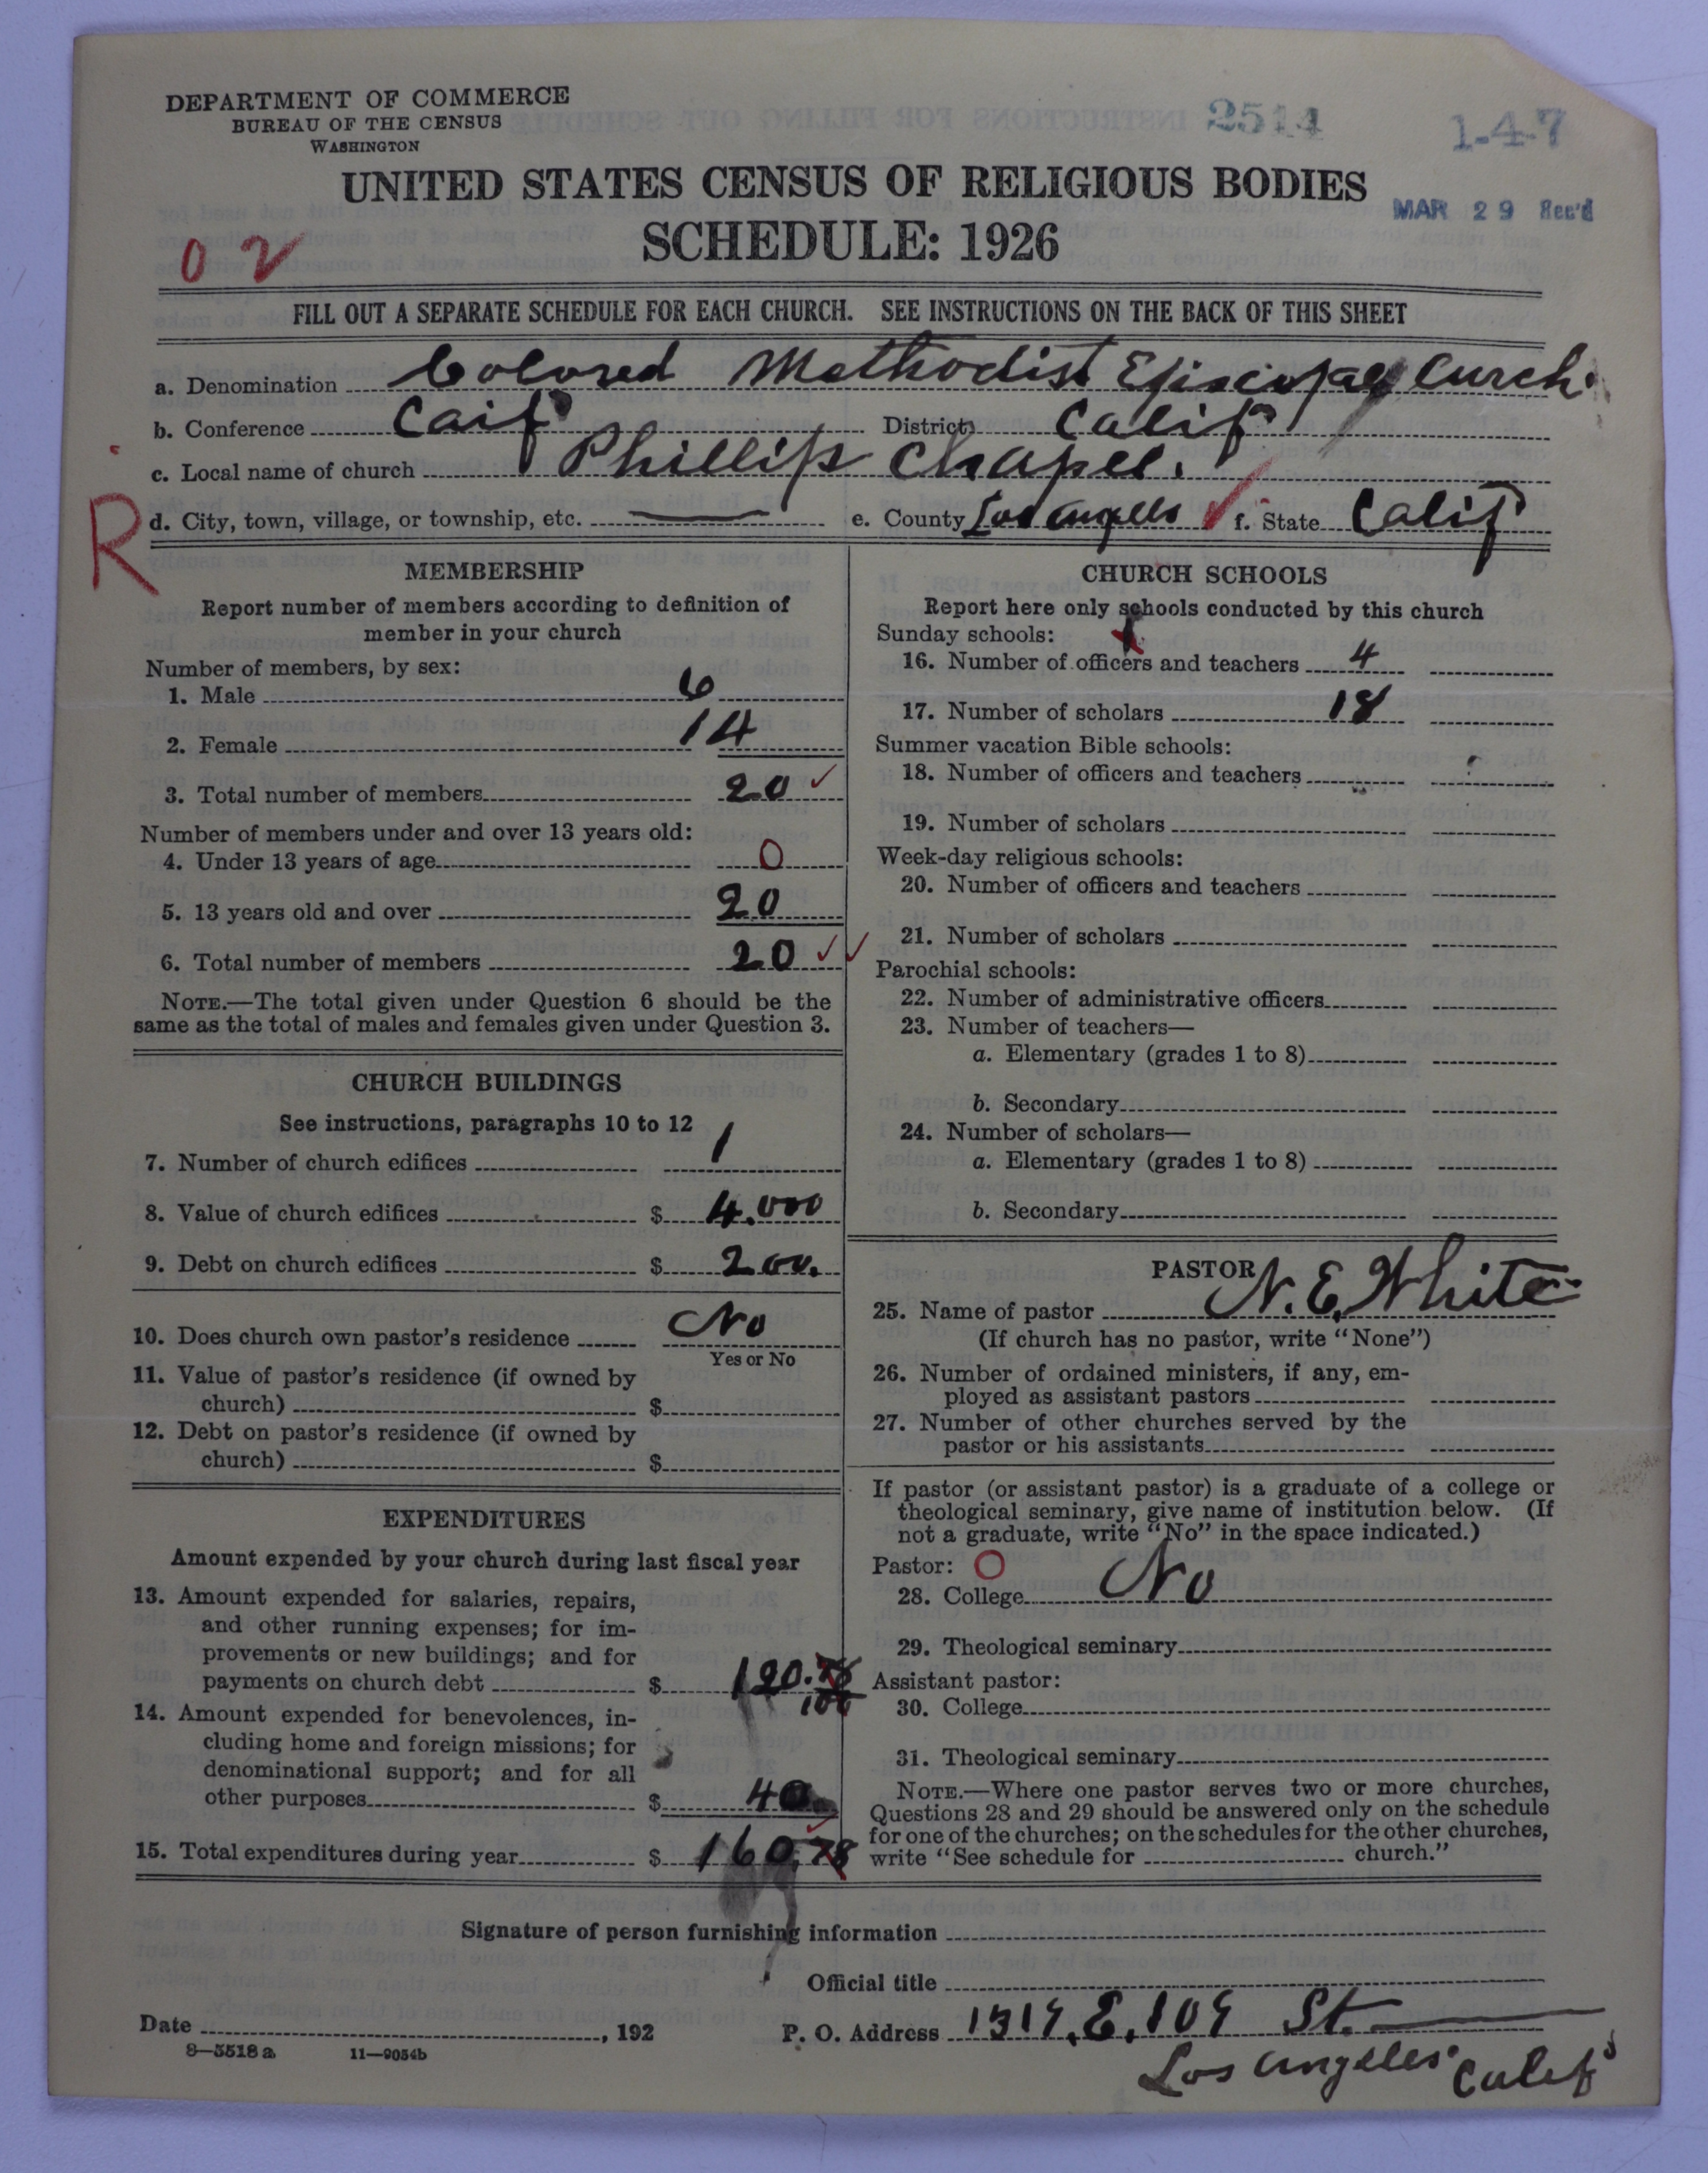 DEPARTMENT OF COMMERCE
BUREAU OF THE CENSUS
WASHINGTON
2514
1-4-7
UNITED STATES CENSUS OF RELIGIOUS BODIES
MAR 29 Rec'd
SCHEDULE: 1926
0 2
FILL OUT A SEPARATE SCHEDULE FOR EACH CHURCH. SEE INSTRUCTIONS ON THE BACK OF THIS SHEET
a. Denomination Colored Methodist Episcopal Curch.
b. Conference Caif District Calif
c. Local name of church Phillips Chapel.
R
d. City, town, village, or township, etc. — e. County Los Angeles ✓ f. State Calif
MEMBERSHIP
Report number of members according to definition of
member in your church
Number of members, by sex:
1. Male 6
2. Female 14
3. Total number of members 20 ✓
Number of members under and over 13 years old:
4. Under 13 years of age 0
5. 13 years old and over 20
6. Total number of members 20 ✓✓
NOTE.—The total given under Question 6 should be the
same as the total of males and females given under Question 3.
CHURCH BUILDINGS
See instructions, paragraphs 10 to 12
7. Number of church edifices 1
8. Value of church edifices $ 4.000
9. Debt on church edifices $ 200.
10. Does church own pastor's residence No
Yes or No
11. Value of pastor's residence (if owned by
church) $
12. Debt on pastor's residence (if owned by
church) $
EXPENDITURES
Amount expended by your church during last fiscal year
13. Amount expended for salaries, repairs,
and other running expenses; for im-
provements or new buildings; and for
payments on church debt $ 120.78
100
14. Amount expended for benevolences, in-
cluding home and foreign missions; for
denominational support; and for all
other purposes $ 40.
15. Total expenditures during year $ 160.78
CHURCH SCHOOLS
Report here only schools conducted by this church
Sunday schools:
16. Number of officers and teachers 4
17. Number of scholars 18
Summer vacation Bible schools:
18. Number of officers and teachers
19. Number of scholars
Week-day religious schools:
20. Number of officers and teachers
21. Number of scholars
Parochial schools:
22. Number of administrative officers
23. Number of teachers—
a. Elementary (grades 1 to 8)
b. Secondary
24. Number of scholars—
a. Elementary (grades 1 to 8)
b. Secondary
PASTOR
25. Name of pastor N. E. White
(If church has no pastor, write "None")
26. Number of ordained ministers, if any, em-
ployed as assistant pastors
27. Number of other churches served by the
pastor or his assistants
If pastor (or assistant pastor) is a graduate of a college or
theological seminary, give name of institution below. (If
not a graduate, write "No" in the space indicated.)
Pastor: O
28. College No
29. Theological seminary
Assistant pastor:
30. College
31. Theological seminary
NOTE.—Where one pastor serves two or more churches,
Questions 28 and 29 should be answered only on the schedule
for one of the churches; on the schedules for the other churches,
write "See schedule for church."
Signature of person furnishing information
Official title
Date , 192 P. O. Address 1319, E, 109 St.
8—5518a 11—9054b
Los Angeles Calif